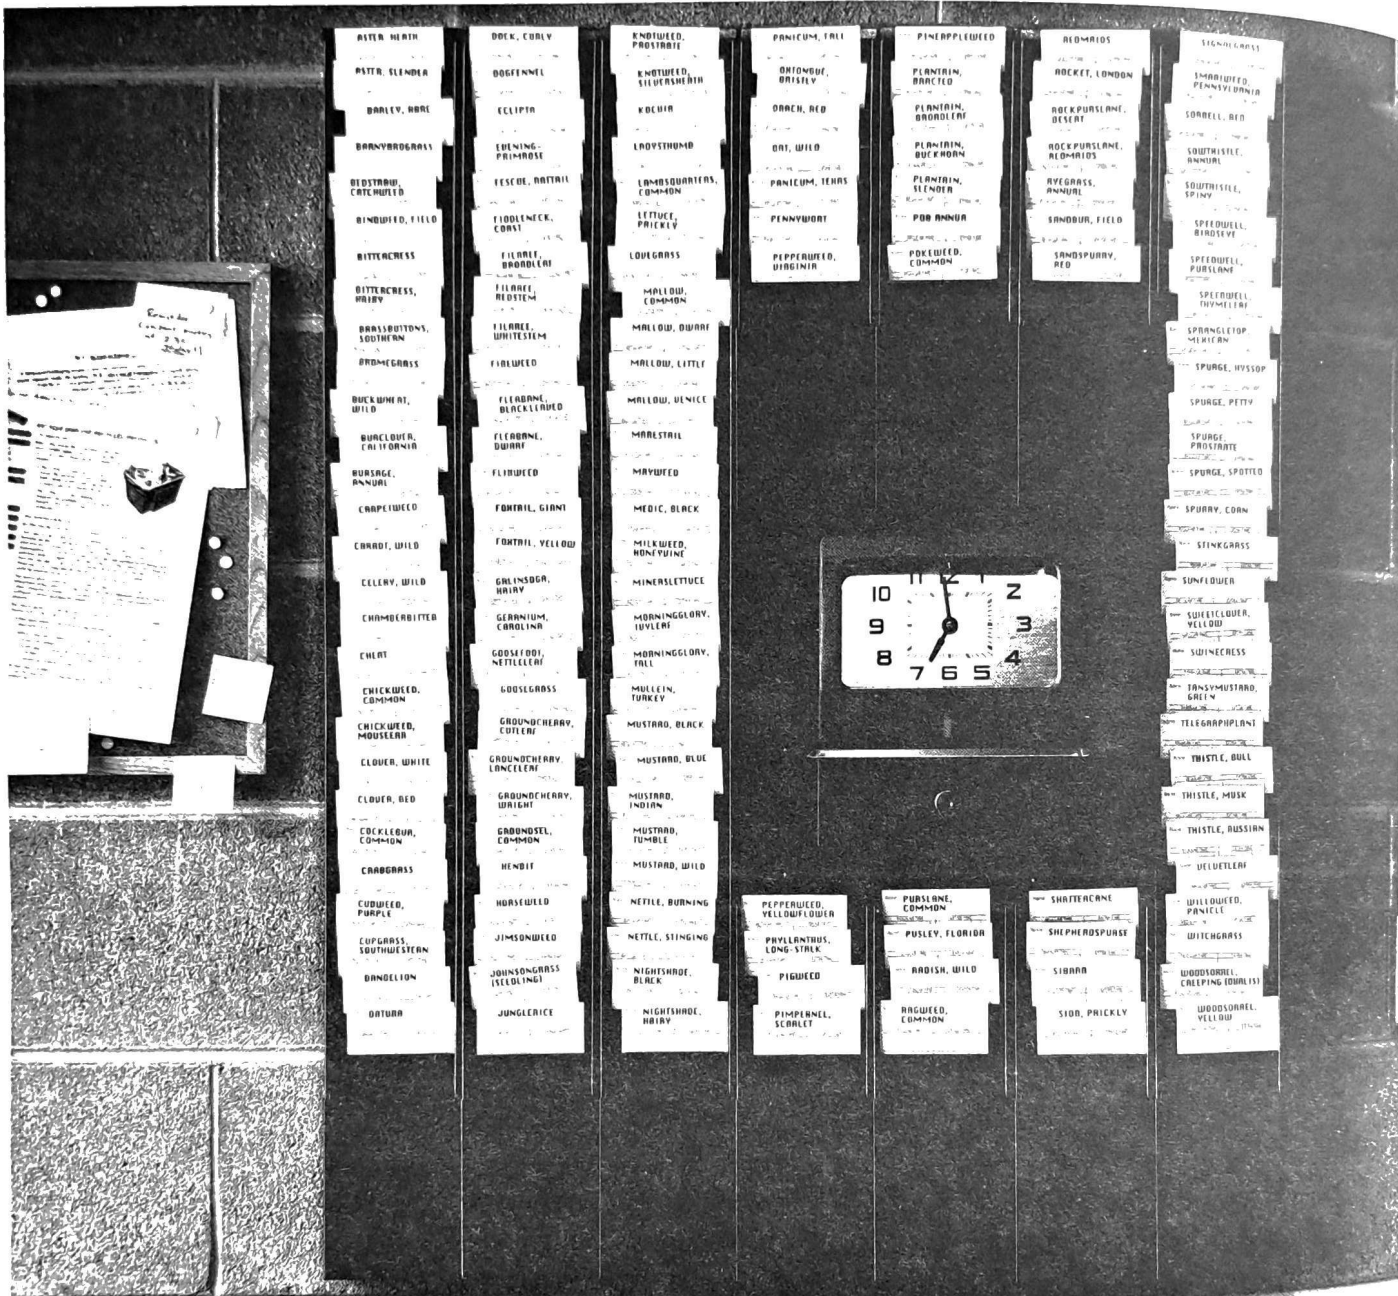 ASTER HEATH
ASTER, SLENDER
BARLEY, HARE
BARNYARDGRASS
BEDSTRAW,
CATCHWEED
BINDWEED, FIELD
BITTERCRESS
BITTERCRESS,
HAIRY
BRASSBUTTONS,
SOUTHERN
BROMEGRASS
BUCKWHEAT,
WILD
BURCLOVER,
CALIFORNIA
BURSAGE,
ANNUAL
CARPETWEED
CARROT, WILD
CELERY, WILD
CHAMBERBITTER
CHEAT
CHICKWEED,
COMMON
CHICKWEED,
MOUSEEAR
CLOVER, WHITE
CLOVER, RED
COCKLEBUR,
COMMON
CRABGRASS
CUDWEED,
PURPLE
CUPGRASS,
SOUTHWESTERN
DANDELION
DATURA
DOCK, CURLY
DOGFENNEL
ECLIPTA
EVENING-
PRIMROSE
FESCUE, RATTAIL
FIDDLENECK,
COAST
FILAREE,
BROADLEAF
FILAREE,
REDSTEM
FILAREE,
WHITESTEM
FIREWEED
FLEABANE,
BLACKLEAVED
FLEABANE,
DWARF
FLIXWEED
FOXTAIL, GIANT
FOXTAIL, YELLOW
GALINSOGA,
HAIRY
GERANIUM,
CAROLINA
GOOSEFOOT,
NETTLELEAF
GOOSEGRASS
GROUNDCHERRY,
CUTLEAF
GROUNDCHERRY,
LANCELEAF
GROUNDCHERRY,
WRIGHT
GROUNDSEL,
COMMON
HENBIT
HORSEWEED
JIMSONWEED
JOHNSONGRASS
(SEEDLING)
JUNGLERICE
KNOTWEED,
PROSTRATE
KNOTWEED,
SILVERSHEATH
KOCHIA
LADYSTHUMB
LAMBSQUARTERS,
COMMON
LETTUCE,
PRICKLY
LOVEGRASS
MALLOW,
COMMON
MALLOW, DWARF
MALLOW, LITTLE
MALLOW, VENICE
MARESTAIL
MAYWEED
MEDIC, BLACK
MILKWEED,
HONEYVINE
MINERSLETTUCE
MORNINGGLORY,
IVYLEAF
MORNINGGLORY,
TALL
MULLEIN,
TURKEY
MUSTARD, BLACK
MUSTARD, BLUE
MUSTARD,
INDIAN
MUSTARD,
TUMBLE
MUSTARD, WILD
NETTLE, BURNING
NETTLE, STINGING
NIGHTSHADE,
BLACK
NIGHTSHADE,
HAIRY
PANICUM, FALL
OXTONGUE,
BRISTLY
ORACH, RED
OAT, WILD
PANICUM, TEXAS
PENNYWORT
PEPPERWEED,
VIRGINIA
PEPPERWEED,
YELLOWFLOWER
PHYLLANTHUS,
LONG-STALK
PIGWEED
PIMPERNEL,
SCARLET
PINEAPPLEWEED
PLANTAIN,
BRACTED
PLANTAIN,
BROADLEAF
PLANTAIN,
BUCKHORN
PLANTAIN,
SLENDER
POA ANNUA
POKEWEED,
COMMON
PURSLANE,
COMMON
PUSLEY, FLORIDA
RADISH, WILD
RAGWEED,
COMMON
REDMAIDS
ROCKET, LONDON
ROCKPURSLANE,
DESERT
ROCKPURSLANE,
REDMAIDS
RYEGRASS,
ANNUAL
SANDBUR, FIELD
SANDSPURRY,
RED
SHATTERCANE
SHEPHERDSPURSE
SIBARA
SIDA, PRICKLY
SIGNALGRASS
SMARTWEED,
PENNSYLVANIA
SORRELL, RED
SOWTHISTLE,
ANNUAL
SOWTHISTLE,
SPINY
SPEEDWELL,
BIRDSEYE
SPEEDWELL,
PURSLANE
SPEEDWELL,
THYMELEAF
SPRANGLETOP,
MEXICAN
SPURGE, HYSSOP
SPURGE, PETTY
SPURGE,
PROSTRATE
SPURGE, SPOTTED
SPURRY, CORN
STINKGRASS
SUNFLOWER
SWEETCLOVER,
YELLOW
SWINECRESS
TANSYMUSTARD,
GREEN
TELEGRAPHPLANT
THISTLE, BULL
THISTLE, MUSK
THISTLE, RUSSIAN
VELVETLEAF
WILLOWEED,
PANICLE
WITCHGRASS
WOODSORREL,
CREEPING (OXALIS)
WOODSORREL,
YELLOW
11 12 1
10 2
9 3
8 4
7 6 5